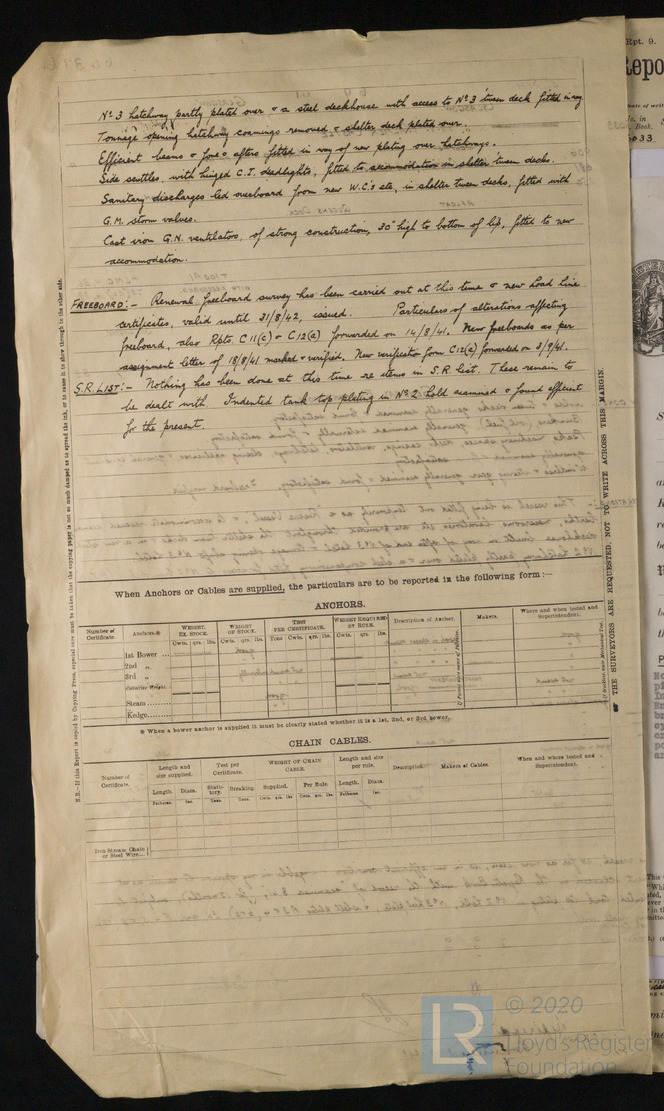 Nº 3 hatchway partly plated over & a steel deckhouse with access to Nº 3 'tween deck fitted in way
Tonnage opening hatchway coamings removed & shelter deck plated over.
Efficient beams & fore & afters fitted in way of new plating over hatchways.
Side scuttles, with hinged C.I. deadlights, fitted to accommodation in shelter tween decks.
Sanitary discharges led overboard from new W.C's etc, in shelter tween decks, fitted with
G.M. storm valves.
Cast iron G.N. ventilators, of strong construction, 30" high to bottom of lip, fitted to new
accommodation.
FREEBOARD:- Renewal freeboard survey has been carried out at this time & new Load Line
certificates, valid until 31/8/42, issued. Particulars of alterations affecting
freeboard, also Rpts. C11(c) & C12(c) forwarded on 14/8/41. New freeboards as per
assignment letter of 18/8/41 marked & verified. New verification form C12(c) forwarded on 3/9/41.
S.R. LIST:- Nothing has been done at this time re items in S.R list. These remain to
be dealt with. Indented tank top plating in Nº 2 hold examined & found efficient
for the present.
N.B.—If this Report is copied by Copying Press, especial care must be taken that the copying paper is not so much damped as to spread the ink, or to cause it to show through to the other side.
THE SURVEYORS ARE REQUESTED NOT TO WRITE ACROSS THIS MARGIN.
When Anchors or Cables are supplied, the particulars are to be reported in the following form:—
ANCHORS.
Number of Certificate. Anchors.* WEIGHT. EX. STOCK. WEIGHT OF STOCK. TEST PER CERTIFICATE. WEIGHT REQUIRED BY RULE. Description of Anchor. Makers. Where and when tested and Superintendent.
Cwts. qrs. lbs. Cwts. qrs. lbs. Tons Cwts. qrs. lbs. Cwts. qrs. lbs.
1st Bower ...
2nd „
3rd „
Collective Weight.
Stream
Kedge
* When a bower anchor is supplied it must be clearly stated whether it is a 1st, 2nd, or 3rd bower.
CHAIN CABLES.
Number of Certificate. Length and size supplied. Test per Certificate. WEIGHT OF CHAIN CABLE. Length and size per rule. Description. Makers of Cables. Where and when tested and Superintendent.
Length. Diam. Statutory. Breaking. Supplied. Per Rule. Length. Diam.
Fathoms. Ins. Tons. Tons. Cwts. qrs. lbs. Cwts. qrs. lbs. Fathoms. Ins.
Iron Stream Chain or Steel Wire...
Rpt. 9.
Repo
LR
© 2020
Lloyd's Register
Foundation